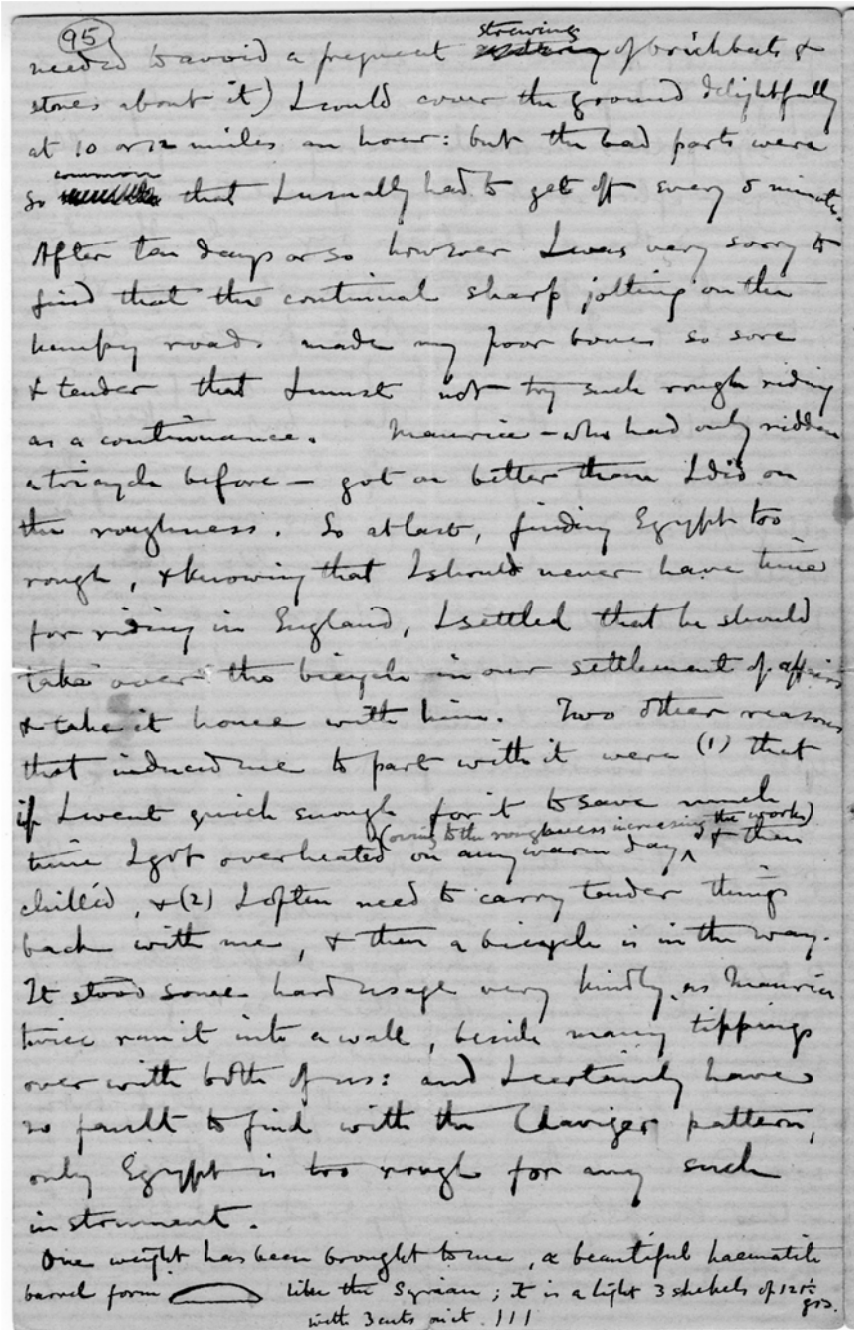 95
needed to avoid a frequent strewing of brickbats &
stones about it) I could cover the ground delightfully
at 10 or 12 miles an hour: but the bad parts were
so common that I usually had to get off every 5 minutes.
After ten days or so however I was very sorry to
find that the continual sharp jolting on the
humpy roads made my poor bones so sore
& tender that I must not try such rough riding
as a continuance. Maurice – who had only ridden
a tricycle before – got on better than I did on
the roughness. So at last, finding Egypt too
rough, & knowing that I should never have time
for riding in England, I settled that he should
take over the bicycle in our settlement of affairs
& take it home with him. Two other reasons
that induced me to part with it were (1) that
if I went quick enough for it to save much
(owing to the roughness increasing the works)
time I got overheated on any warm day & then
chilled, & (2) I often need to carry tender things
back with me, & then a bicycle is in the way.
It stood some hard usage very kindly, as Maurice
twice ran it into a wall, beside many tippings
over with both of us: and I certainly have
no fault to find with the Claviger pattern,
only Egypt is too rough for any such
instrument.
One weight has been brought to me, a beautiful haematite
barrel form like the Syrian; it is a light 3 shekels of grs.
with 3 cuts on it. 111